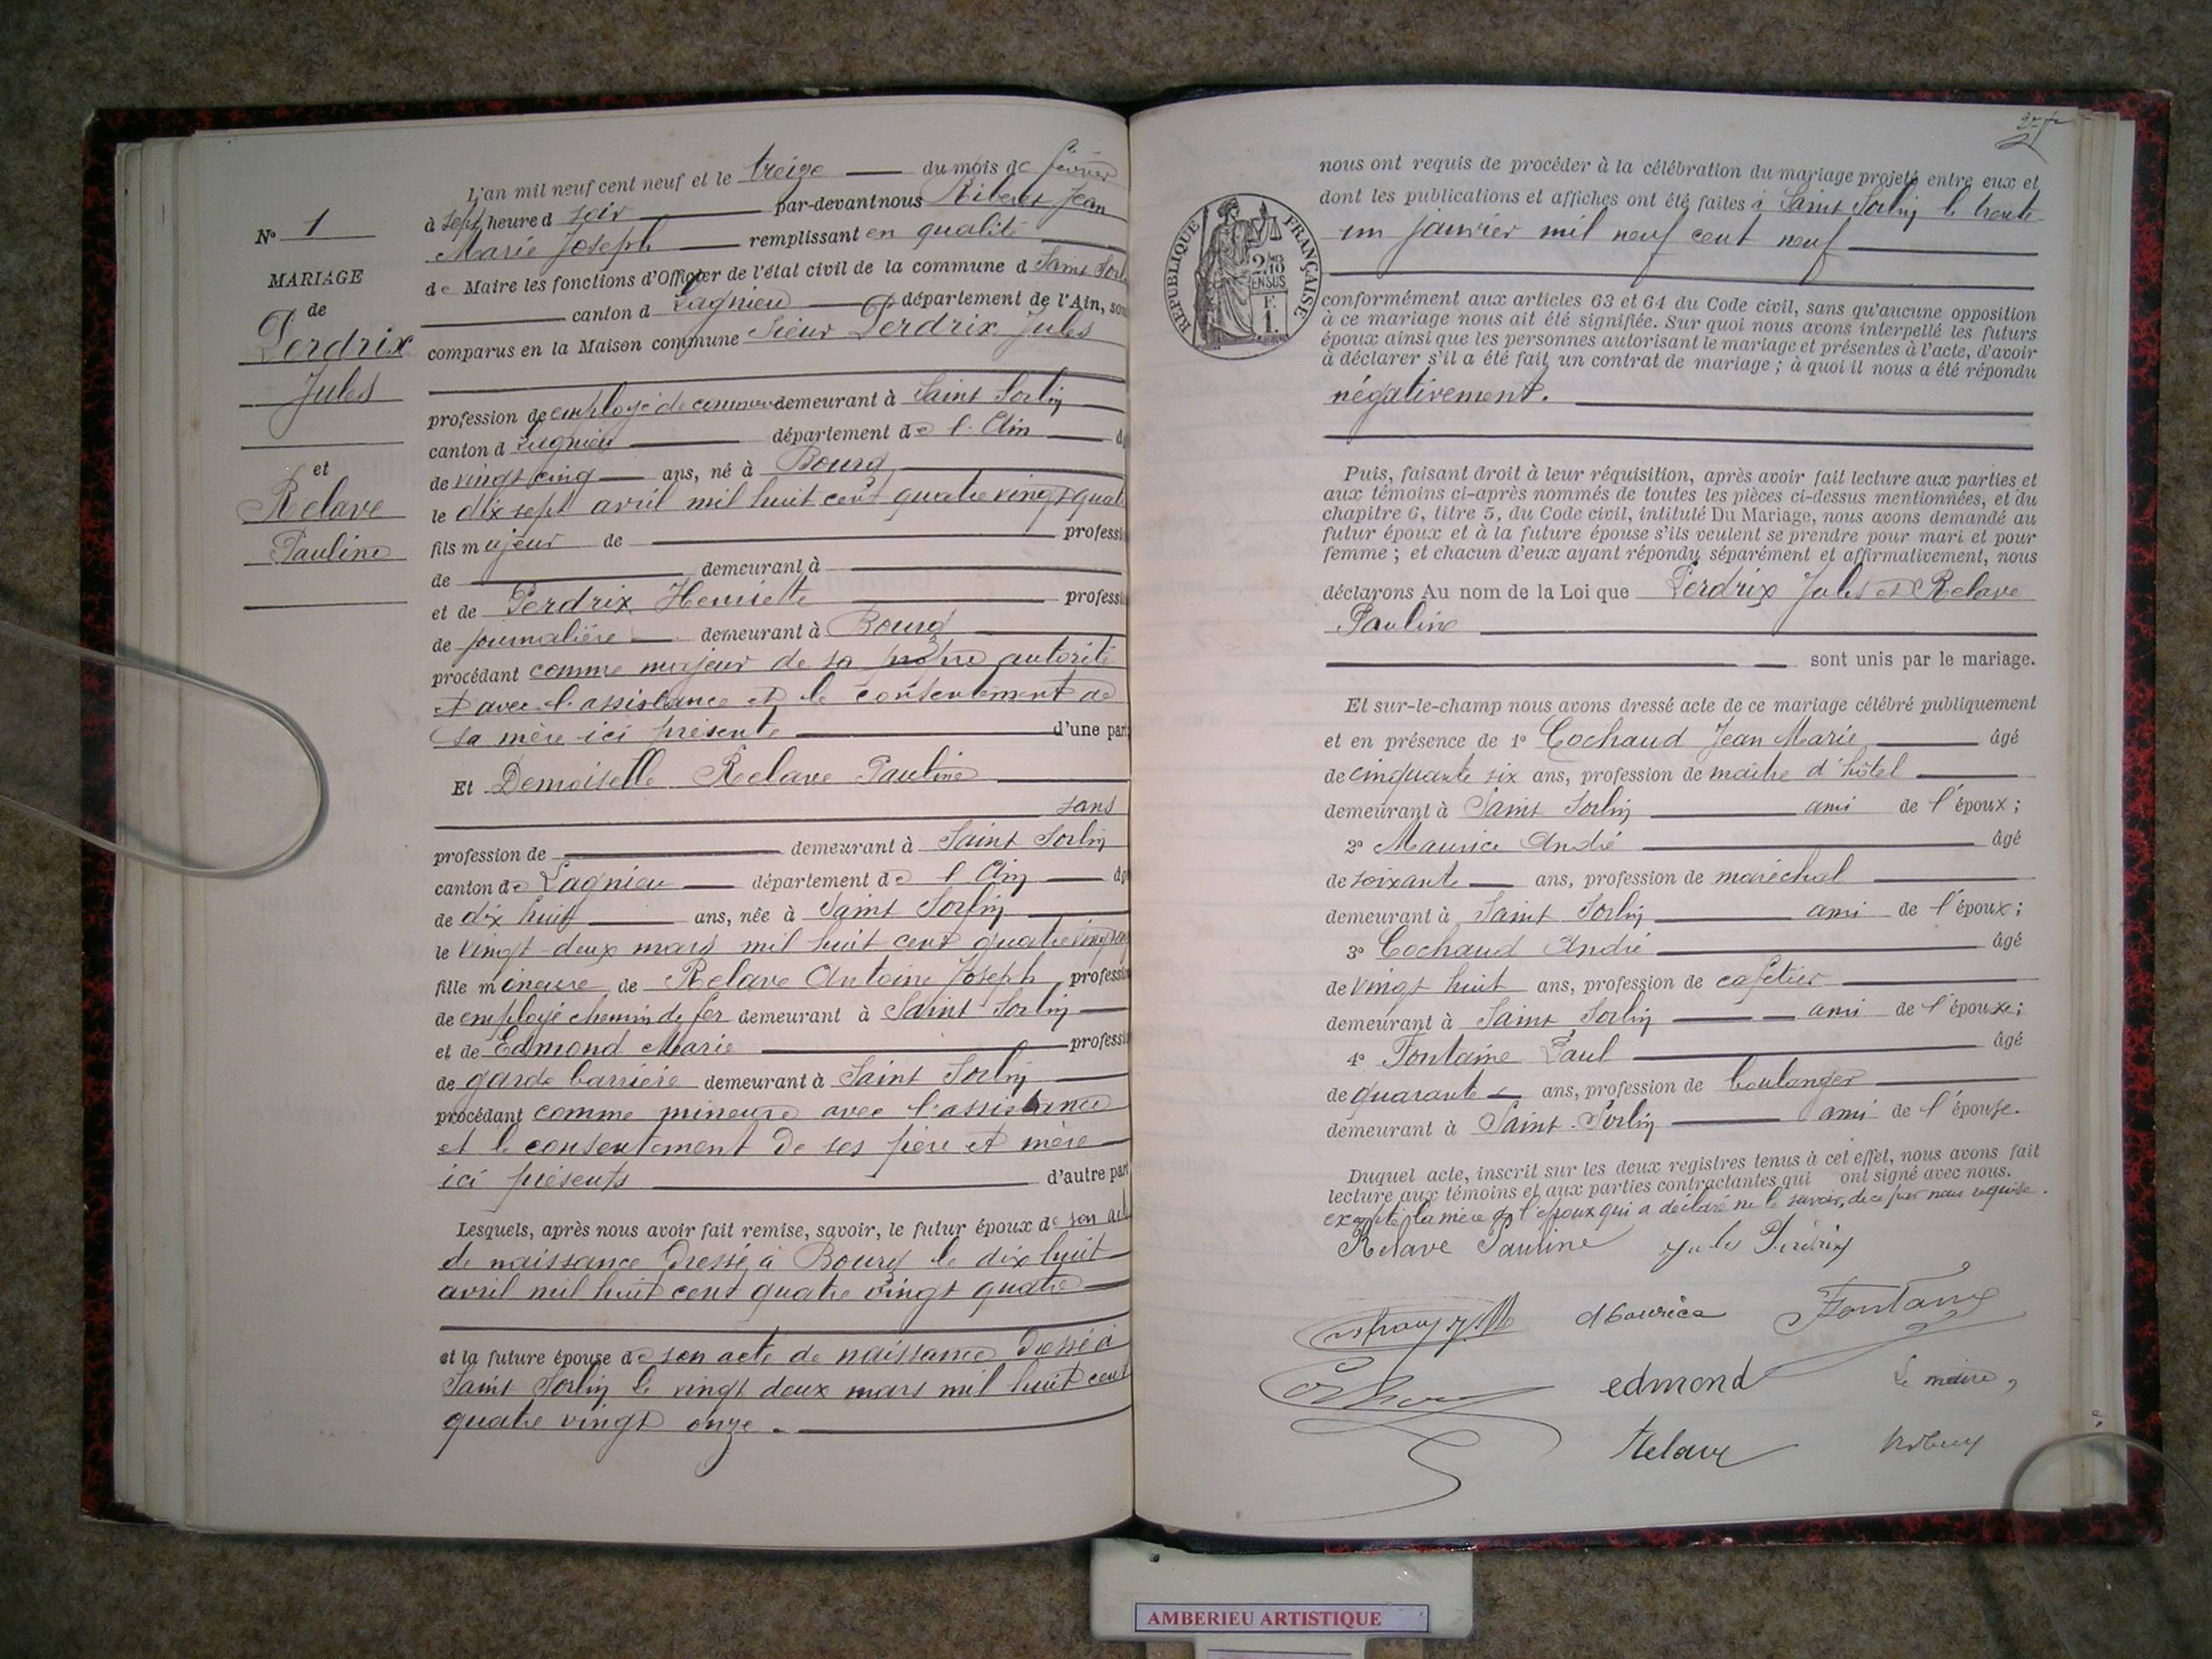 L'an mil neuf cent neuf et le treize du mois de février
à sept heure d soir par-devant nous Ribert Jean
Marie Joseph remplissant en qualité
de Maire les fonctions d'Officier de l'état civil de la commune d Saint Sorl
canton d Lagnieu département de l'Ain, son
comparus en la Maison commune Sieur Perdrix Jules
profession de employé de commerce demeurant à Saint Sorlin
canton d Lagnieu département de l'Ain âg
de vingt cinq ans, né à Bourg
le dix sept avril mil huit cent quatre vingt quat
fils majeur de professi
de demeurant à
et de Perdrix Henriette professi
de journalière demeurant à Bourg
procédant comme majeur de sa propre autorité
et avec l'assistance et le consentement de
sa mère ici présente d'une part
Et Demoiselle Relave Pauline
sans
profession de demeurant à Saint Sorlin
canton de Lagnieu département de l'Ain âg
de dix huit ans, née à Saint Sorlin
le vingt-deux mars mil huit cent quatre vingt
fille mineure de Relave Antoine Joseph professi
de employé chemin de fer demeurant à Saint Sorlin
et de Edmond Marie professi
de garde barrière demeurant à Saint Sorlin
procédant comme mineure avec l'assistance
et le consentement de ses père et mère
ici présents d'autre part
Lesquels, après nous avoir fait remise, savoir, le futur époux de son act
de naissance dressé à Bourg le dix huit
avril mil huit cent quatre vingt quatre
et la future épouse de son acte de naissance dressé à
Saint Sorlin le vingt deux mars mil huit cent
quatre vingt onze.
N° 1
MARIAGE
de
Perdrix
Jules
et
Relave
Pauline
nous ont requis de procéder à la célébration du mariage projeté entre eux et
dont les publications et affiches ont été faites à Saint Sorlin le trente
un janvier mil neuf cent neuf
REPUBLIQUE FRANÇAISE
2/10
EN SUS
F.
1.
conformément aux articles 63 et 64 du Code civil, sans qu'aucune opposition
à ce mariage nous ait été signifiée. Sur quoi nous avons interpellé les futurs
époux ainsi que les personnes autorisant le mariage et présentes à l'acte, d'avoir
à déclarer s'il a été fait un contrat de mariage ; à quoi il nous a été répondu
négativement.
Puis, faisant droit à leur réquisition, après avoir fait lecture aux parties et
aux témoins ci-après nommés de toutes les pièces ci-dessus mentionnées, et du
chapitre 6, titre 5, du Code civil, intitulé Du Mariage, nous avons demandé au
futur époux et à la future épouse s'ils veulent se prendre pour mari et pour
femme ; et chacun d'eux ayant répondu séparément et affirmativement, nous
déclarons Au nom de la Loi que Perdrix Jules et Relave
Pauline
sont unis par le mariage.
Et sur-le-champ nous avons dressé acte de ce mariage célébré publiquement
et en présence de 1° Cochaud Jean Marie âgé
de cinquante six ans, profession de maître d'hôtel
demeurant à Saint Sorlin ami de l'époux ;
2° Maurice André âgé
de soixante ans, profession de maréchal
demeurant à Saint Sorlin ami de l'époux ;
3° Cochaud André âgé
de vingt huit ans, profession de cafetier
demeurant à Saint Sorlin ami de l'épouxe ;
4° Fontaine Paul âgé
de quarante ans, profession de boulanger
demeurant à Saint-Sorlin ami de l'épouse.
Duquel acte, inscrit sur les deux registres tenus à cet effet, nous avons fait
lecture aux témoins et aux parties contractantes qui ont signé avec nous.
excepté la mère de l'époux qui a déclaré ne le savoir, de ce par nous requise.
Relave Pauline Jules Perdrix
Maurice Fontaine
edmond Le maire,
Relave
AMBERIEU ARTISTIQUE